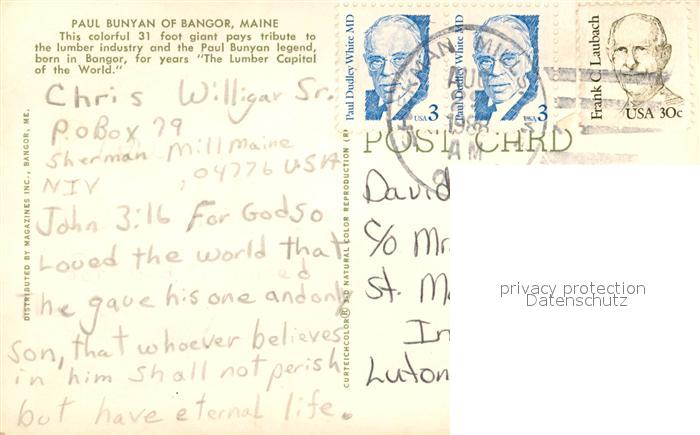 PAUL BUNYAN OF BANGOR, MAINE
This colorful 31 foot giant pays tribute to
the lumber industry and the Paul Bunyan legend,
born in Bangor, for years "The Lumber Capital
of the World."
Chris Willigar Sr.
P.O Box 79
Sherman Mill Maine
, 04776 USA
NIV
John 3:16 For God so
Loved the world that
he gave his one and only
son, that whoever believes
in him shall not perish
but have eternal life.
DISTRIBUTED BY MAGAZINES INC., BANGOR, ME.
CURTEICHCOLOR® 3-D NATURAL COLOR REPRODUCTION
Paul Dudley White MD
USA 3
Paul Dudley White MD
USA 3
Frank C. Laubach
USA 30c
SHERMAN MILLS
1988
AM
POST CARD
David
c/o Mr
St. M
In
Luton
privacy protection
Datenschutz